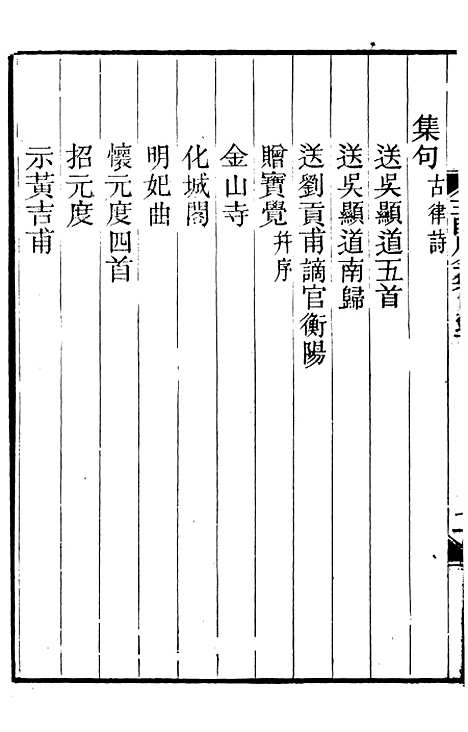 集句古律詩
送吳顯道五首
送吳顯道南歸
送劉貢甫謫官衡陽
贈寶覺并序
金山寺
化城閣
明妃曲
懷元度四首
招元度
示黃吉甫